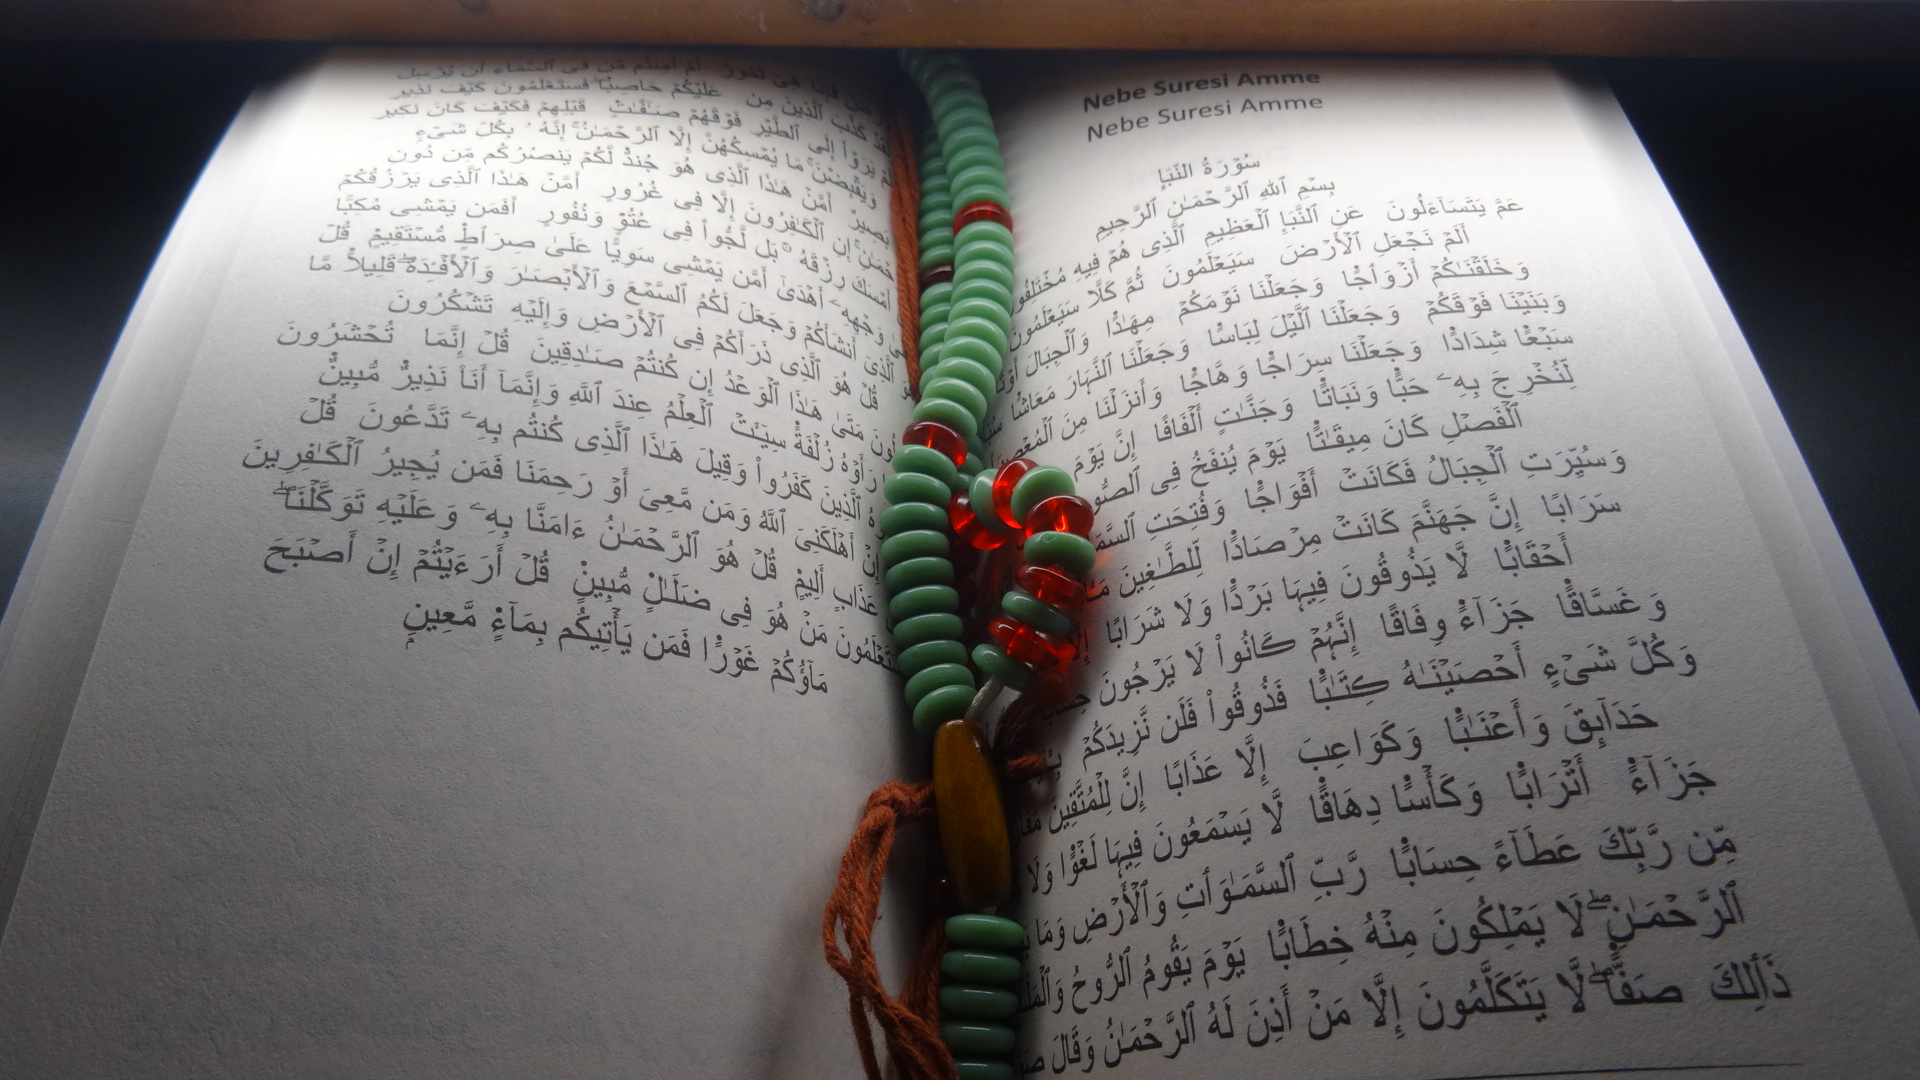 هِىَ تَمُورُ أَمْ أَمِنتُم مَّن فِى ٱلسَّمَآءِ أَن يُرْسِلَ
كَذَّبَ ٱلَّذِينَ مِن عَلَيْكُمْ حَاصِبًا ۖ فَسَتَعْلَمُونَ كَيْفَ نَذِيرِ
يَرَوْا۟ إِلَى ٱلطَّيْرِ فَوْقَهُمْ صَـٰٓفَّـٰتٍ قَبْلِهِمْ فَكَيْفَ كَانَ نَكِيرِ
وَيَقْبِضْنَ ۚ مَا يُمْسِكُهُنَّ إِلَّا ٱلرَّحْمَـٰنُ ۚ إِنَّهُۥ بِكُلِّ شَىْءٍ
بَصِيرٌ أَمَّنْ هَـٰذَا ٱلَّذِى هُوَ جُندٌ لَّكُمْ يَنصُرُكُم مِّن دُونِ
إِنِ ٱلْكَـٰفِرُونَ إِلَّا فِى غُرُورٍ أَمَّنْ هَـٰذَا ٱلَّذِى يَرْزُقُكُمْ
أَمْسَكَ رِزْقَهُۥ ۚ بَل لَّجُّوا۟ فِى عُتُوٍّ وَنُفُورٍ أَفَمَن يَمْشِى مُكِبًّا
وَجْهِهِۦٓ أَهْدَىٰٓ أَمَّن يَمْشِى سَوِيًّا عَلَىٰ صِرَٰطٍ مُّسْتَقِيمٍ قُلْ
ٱلَّذِىٓ أَنشَأَكُمْ وَجَعَلَ لَكُمُ ٱلسَّمْعَ وَٱلْأَبْصَـٰرَ وَٱلْأَفْـِٔدَةَ ۖ قَلِيلًا مَّا
قُلْ هُوَ ٱلَّذِى ذَرَأَكُمْ فِى ٱلْأَرْضِ وَإِلَيْهِ تَشْكُرُونَ
مَتَىٰ هَـٰذَا ٱلْوَعْدُ إِن كُنتُمْ صَـٰدِقِينَ قُلْ إِنَّمَا تُحْشَرُونَ
زُلْفَةً سِيٓـَٔتْ ٱلْعِلْمُ عِندَ ٱللَّهِ وَإِنَّمَآ أَنَا۠ نَذِيرٌ مُّبِينٌ
ٱلَّذِينَ كَفَرُوا۟ وَقِيلَ هَـٰذَا ٱلَّذِى كُنتُم بِهِۦ تَدَّعُونَ قُلْ
أَهْلَكَنِىَ ٱللَّهُ وَمَن مَّعِىَ أَوْ رَحِمَنَا فَمَن يُجِيرُ ٱلْكَـٰفِرِينَ
عَذَابٍ أَلِيمٍ قُلْ هُوَ ٱلرَّحْمَـٰنُ ءَامَنَّا بِهِۦ وَعَلَيْهِ تَوَكَّلْنَا ۖ
مَنْ هُوَ فِى ضَلَـٰلٍ مُّبِينٍ قُلْ أَرَءَيْتُمْ إِنْ أَصْبَحَ
مَآؤُكُمْ غَوْرًا فَمَن يَأْتِيكُم بِمَآءٍ مَّعِينٍ
Nebe Suresi Amme
Nebe Suresi Amme
سُورَةُ النَّبَإِ
بِسْمِ ٱللَّهِ ٱلرَّحْمَـٰنِ ٱلرَّحِيمِ
عَمَّ يَتَسَآءَلُونَ عَنِ ٱلنَّبَإِ ٱلْعَظِيمِ ٱلَّذِى هُمْ فِيهِ مُخْتَلِفُو
أَلَمْ نَجْعَلِ ٱلْأَرْضَ سَيَعْلَمُونَ ثُمَّ كَلَّا سَيَعْلَمُونَ
وَخَلَقْنَـٰكُمْ أَزْوَٰجًا وَجَعَلْنَا نَوْمَكُمْ مِهَـٰدًا وَٱلْجِبَالَ
وَبَنَيْنَا فَوْقَكُمْ وَجَعَلْنَا ٱلَّيْلَ لِبَاسًا وَجَعَلْنَا ٱلنَّهَارَ مَعَاشًا
سَبْعًا شِدَادًا وَجَعَلْنَا سِرَاجًا وَهَّاجًا وَأَنزَلْنَا مِنَ
لِّنُخْرِجَ بِهِۦ حَبًّا وَنَبَاتًا وَجَنَّـٰتٍ أَلْفَافًا إِنَّ يَوْمَ
ٱلْفَصْلِ كَانَ مِيقَـٰتًا يَوْمَ يُنفَخُ فِى ٱلصُّو
وَسُيِّرَتِ ٱلْجِبَالُ فَكَانَتْ أَفْوَاجًا وَفُتِحَتِ
سَرَابًا إِنَّ جَهَنَّمَ كَانَتْ مِرْصَادًا لِّلطَّـٰغِينَ
أَحْقَابًا لَّا يَذُوقُونَ فِيهَا بَرْدًا وَلَا شَرَابًا
وَغَسَّاقًا جَزَآءً وِفَاقًا إِنَّهُمْ كَانُوا۟ لَا يَرْجُونَ
وَكُلَّ شَىْءٍ أَحْصَيْنَـٰهُ كِتَـٰبًا فَذُوقُوا۟ فَلَن نَّزِيدَكُمْ
حَدَآئِقَ وَأَعْنَـٰبًا وَكَوَاعِبَ إِلَّا عَذَابًا إِنَّ لِلْمُتَّقِينَ
جَزَآءً أَتْرَابًا وَكَأْسًا دِهَاقًا لَّا يَسْمَعُونَ فِيهَا لَغْوًا وَلَا
مِّن رَّبِّكَ عَطَآءً حِسَابًا رَّبِّ ٱلسَّمَـٰوَٰتِ وَٱلْأَرْضِ وَمَا
ٱلرَّحْمَـٰنِ ۖ لَا يَمْلِكُونَ مِنْهُ خِطَابًا يَوْمَ يَقُومُ ٱلرُّوحُ
ذَٰلِكَ صَفًّا ۖ لَّا يَتَكَلَّمُونَ إِلَّا مَنْ أَذِنَ لَهُ ٱلرَّحْمَـٰنُ وَقَالَ